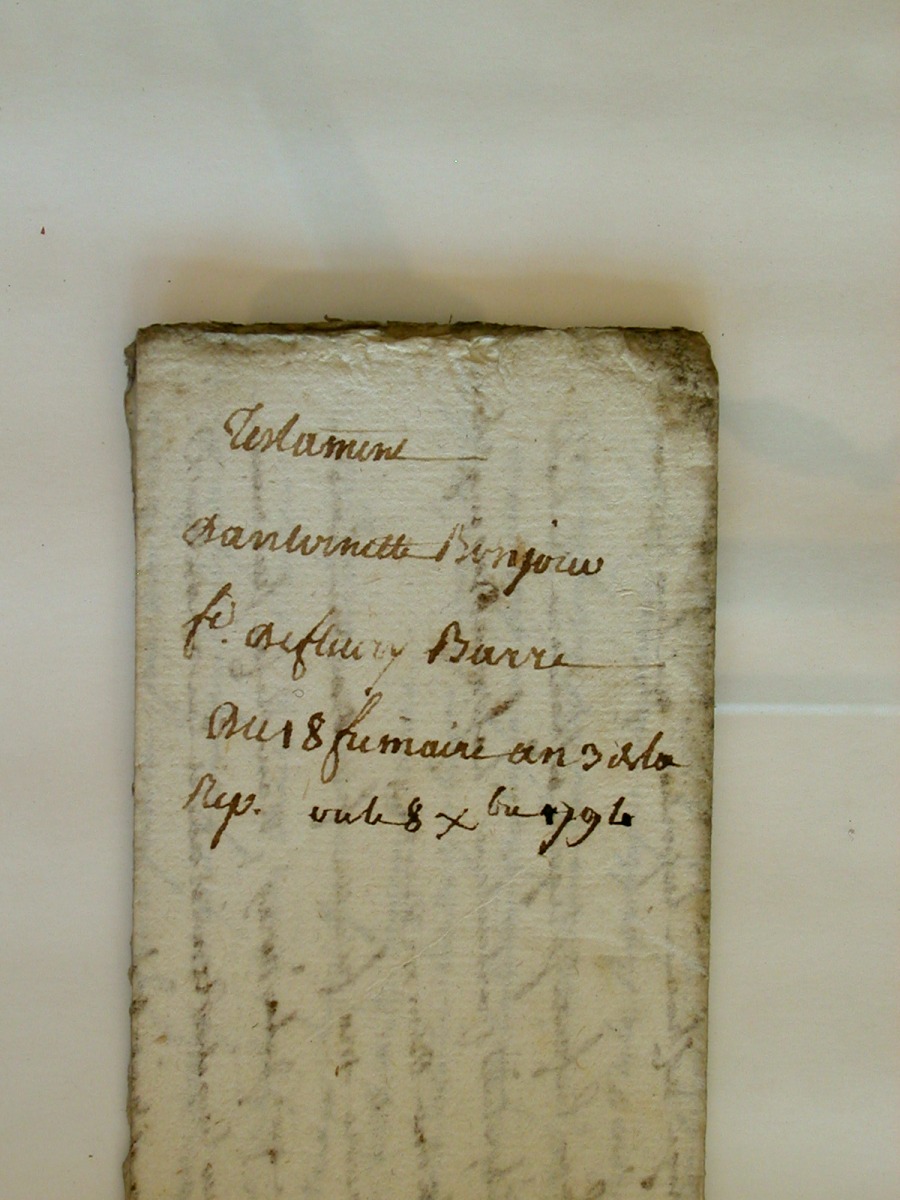 Testament
Dantoinette Bonjour
fe. de fleury Barre
Du 18 frimaire an 3 de la
Rep. ou le 8 Xbre 1794